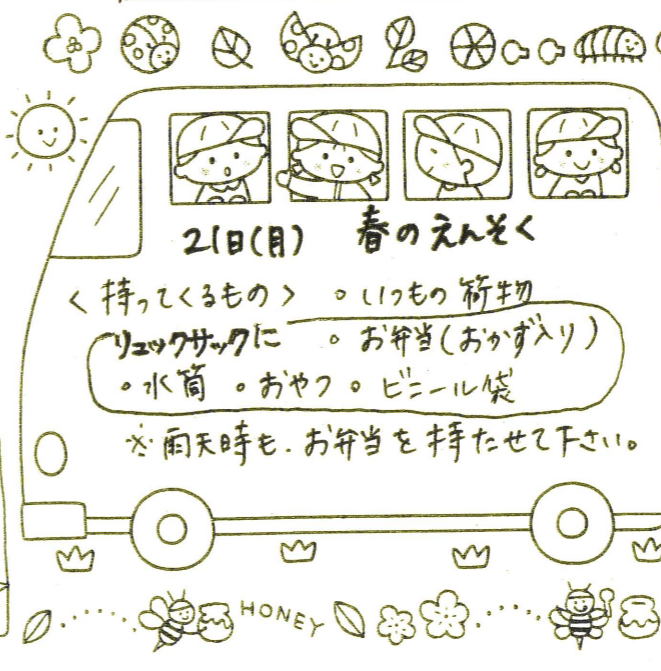 21日(月) 春のえんそく
〈持ってくるもの〉 ◦いつもの荷物
リュックサックに ◦お弁当(おかず入り)
◦水筒 ◦おやつ ◦ビニール袋
※雨天時も、お弁当を持たせて下さい。
HONEY